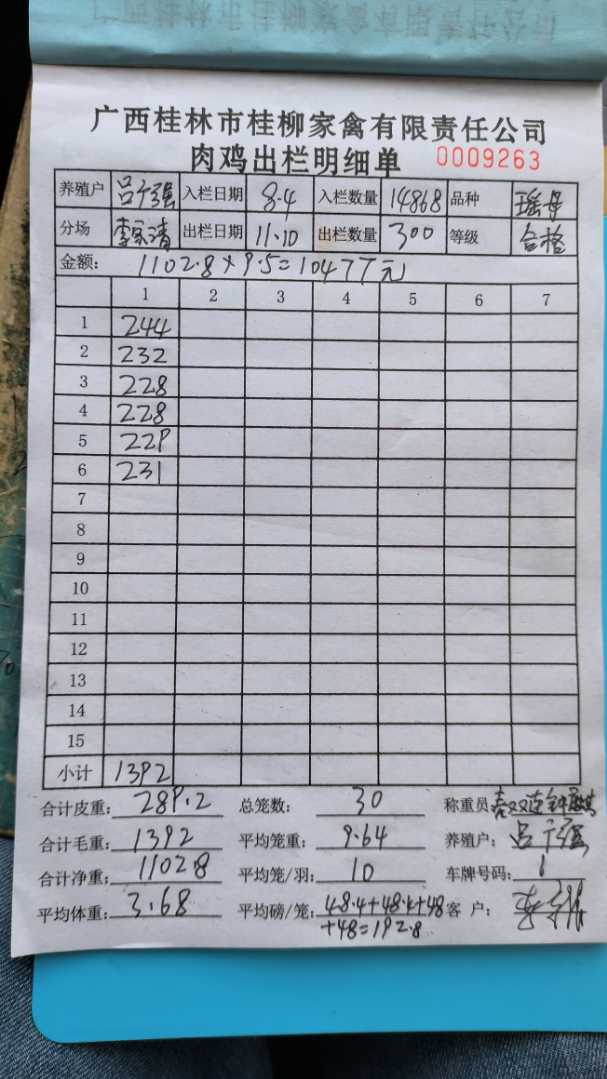 广西桂林市桂柳家禽有限责任公司
肉鸡出栏明细单 0009263
养殖户 吕广强 入栏日期 8.4 入栏数量 14868 品种 瑶母
分场 李家清 出栏日期 11.10 出栏数量 300 等级 合格
金额: 1102.8×9.5=10477元
1 2 3 4 5 6 7
1 244
2 232
3 228
4 228
5 229
6 231
7
8
9
10
11
12
13
14
15
小计 1392
合计皮重: 289.2 总笼数: 30 称重员
合计毛重: 1392 平均笼重: 9.64 养殖户: 吕广强
合计净重: 1102.8 平均笼/羽: 10 车牌号码: 1
平均体重: 3.68 平均磅/笼: 48.4+48.4+48 客户:
+48=192.8